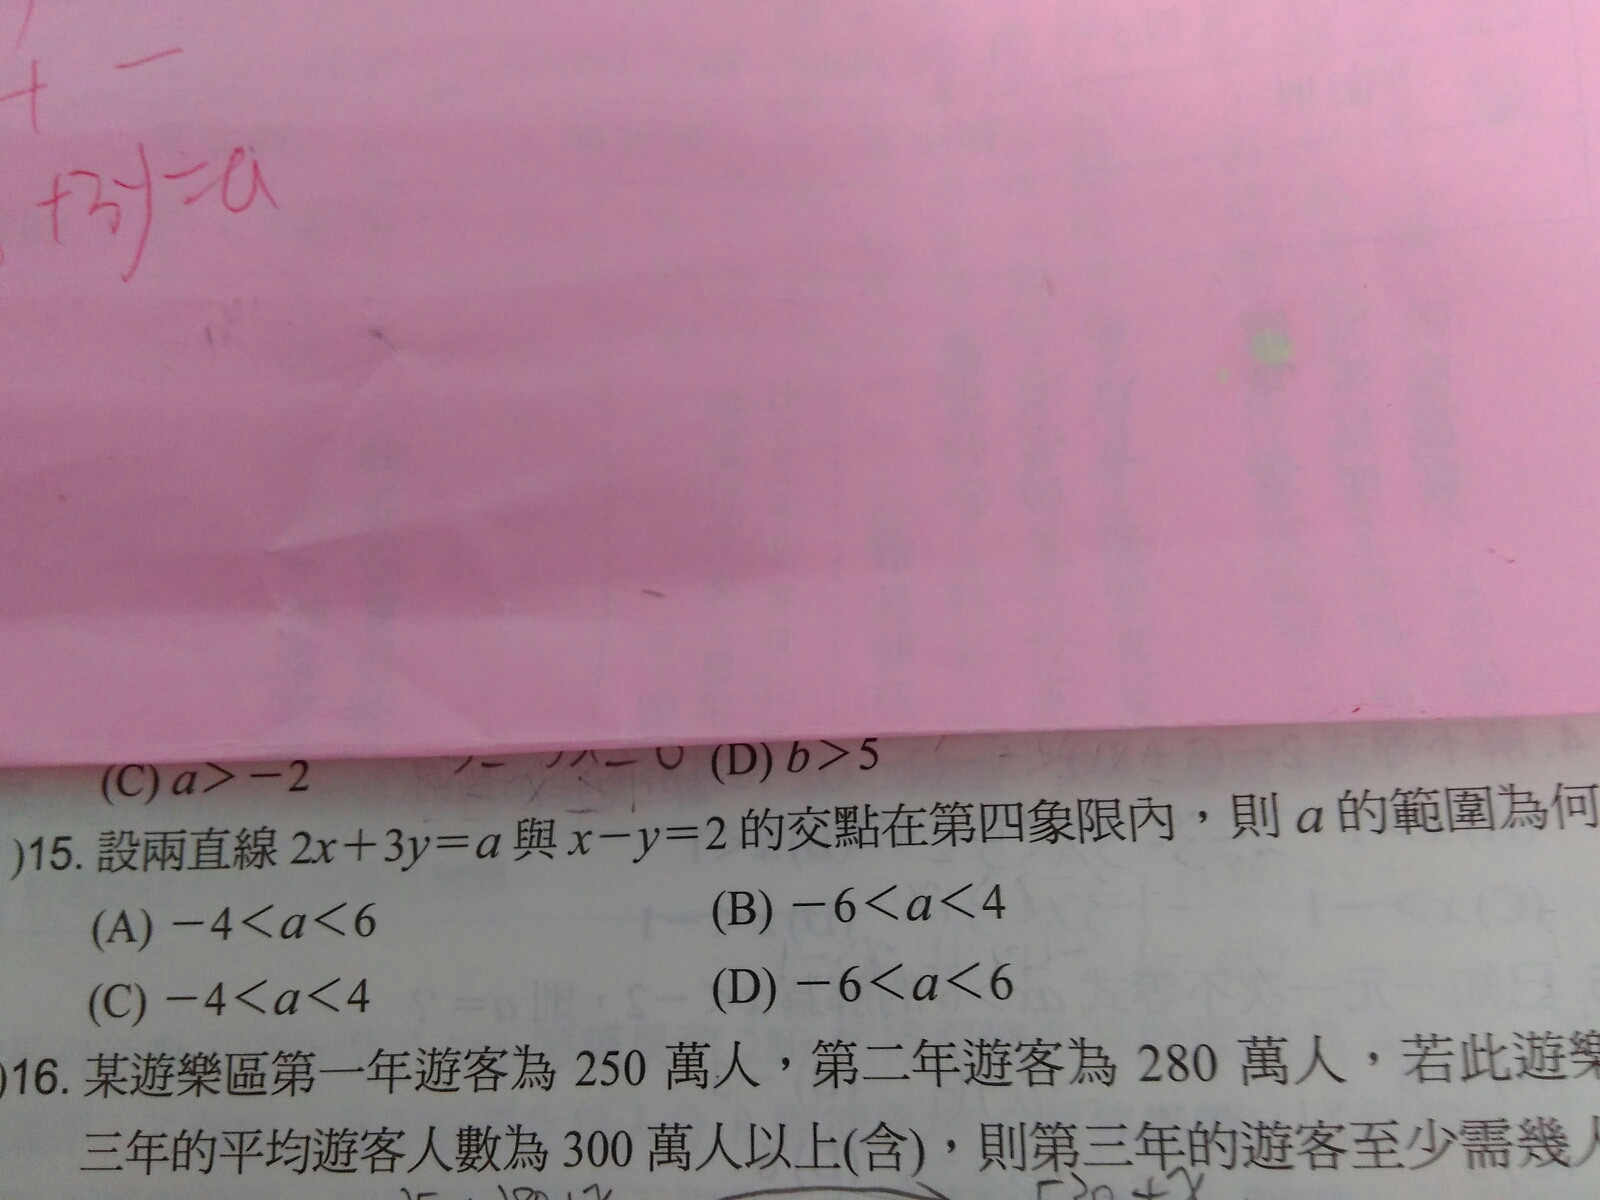 + −
+3y=a
(C) a>−2 (D) b>5
)15. 設兩直線 2x+3y=a 與 x−y=2 的交點在第四象限內，則 a 的範圍為何
(A) −4<a<6 (B) −6<a<4
(C) −4<a<4 (D) −6<a<6
)16. 某遊樂區第一年遊客為 250 萬人，第二年遊客為 280 萬人，若此遊樂
三年的平均遊客人數為 300 萬人以上(含)，則第三年的遊客至少需幾人